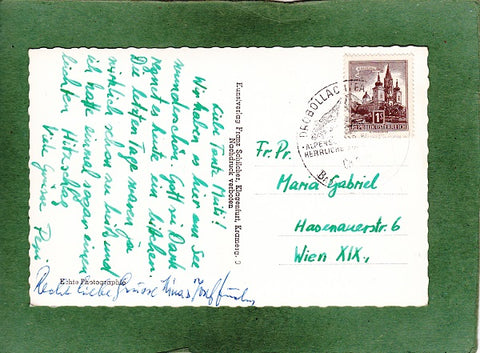 Liebe Tante Mitzi!
Wir haben es hier am See
wunderschön. Gott sei Dank
regnet es heute ein bißchen.
Die letzten Tage waren ja
wirklich schon zu heiß und
ich hatte einmal sogar einen
leichten Hitzschlag
Viele Grüsse
Recht liebe Grüsse
Kunstverlag Franz Schilcher, Klagenfurt, Kramerg. 9
Nachdruck verboten
Echte Photographie
DROBOLLACH
ALPENS
HERRLICHE
1S
REPUBLIK ÖSTERREICH
Fr. Pr.
Maria Gabriel
Hasenauerstr. 6
Wien XIX.,